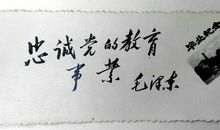 忠诚党的教育
事业
毛泽东
毕业纪念